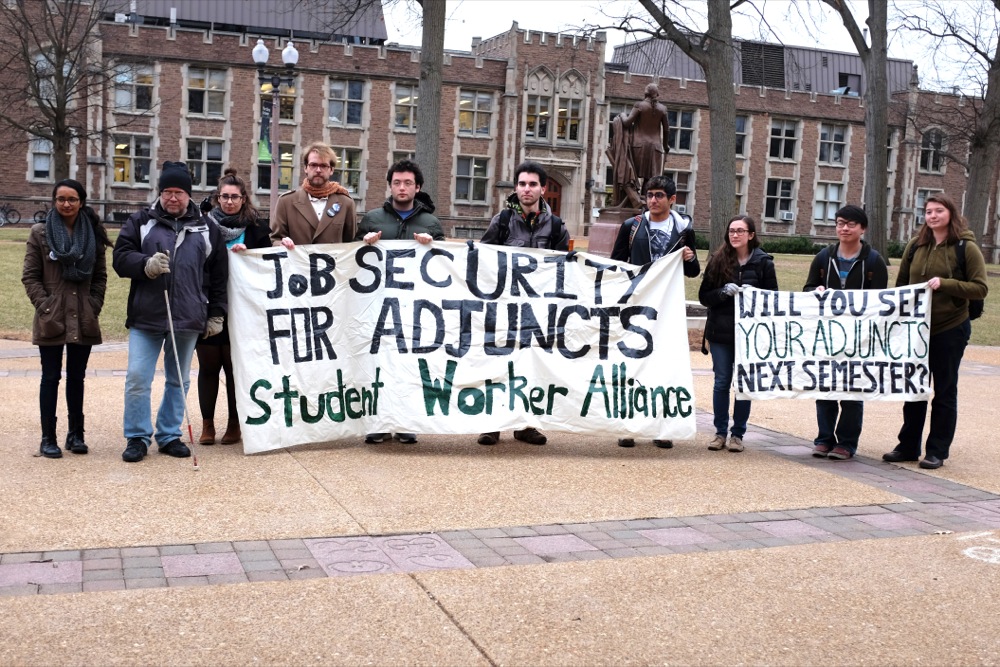 JOB SECURITY
FOR ADJUNCTS
Student Worker Alliance
WILL YOU SEE
YOUR ADJUNCTS
NEXT SEMESTER?